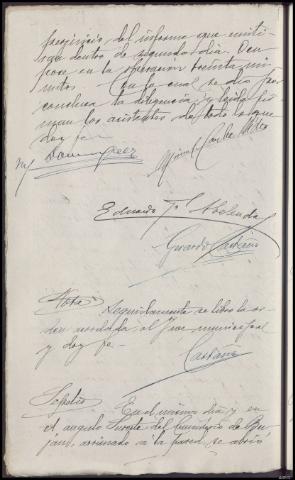 perjuicio del informe que emiti-
rán dentro de segundo día. Ocu-
paron en la operación treinta mi-
nutos. Con lo cual se dió por
concluida la diligencia, y leída fir-
man los asistentes de todo lo que
doy fe.
M. Dominguez
Eduardo Fz. Arelenda
Gerardo Castaño
Nota. Seguidamente se libró la or-
den acordada al Juez municipal
y doy fe.
Castaño
Sepelio. En el mismo día y en
el angulo Sureste del Cementerio de Bu-
ján, arrimado a la pared se abrió